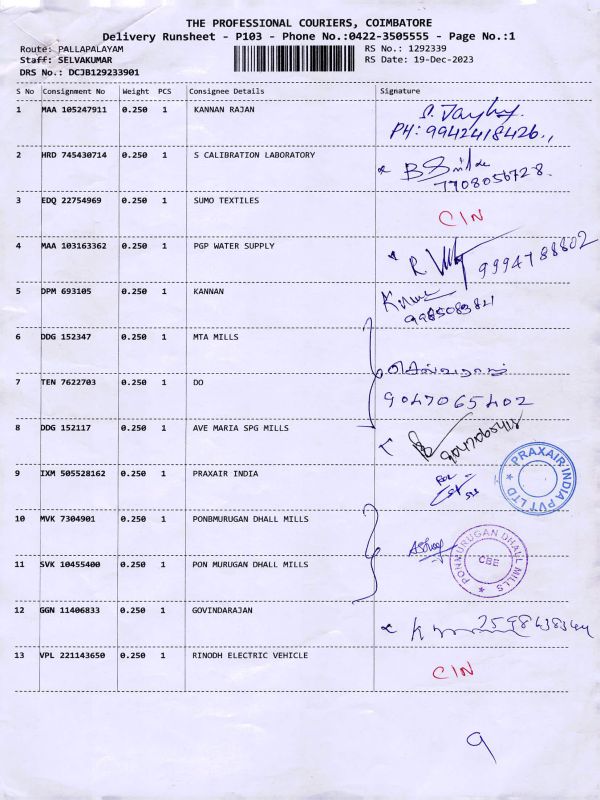 THE PROFESSIONAL COURIERS, COIMBATORE
Delivery Runsheet - P103 - Phone No.:0422-3505555 - Page No.:1
Route: PALLAPALAYAM RS No.: 1292339
Staff: SELVAKUMAR RS Date: 19-Dec-2023
DRS No.: DCJB129233901
S No Consignment No Weight PCS Consignee Details Signature
1 MAA 105247911 0.250 1 KANNAN RAJAN
PH: 9942418426
2 HRD 745430714 0.250 1 S CALIBRATION LABORATORY
7708056728
3 EDQ 22754969 0.250 1 SUMO TEXTILES CIN
4 MAA 103163362 0.250 1 PGP WATER SUPPLY
9994788802
5 DPM 693105 0.250 1 KANNAN
9985083821
6 DDG 152347 0.250 1 MTA MILLS
செல்வராஜ்
7 TEN 7622703 0.250 1 DO
9047065402
8 DDG 152117 0.250 1 AVE MARIA SPG MILLS
9 IXM 505528162 0.250 1 PRAXAIR INDIA
PRAXAIR INDIA PVT LTD
10 MVK 7304901 0.250 1 PONBMURUGAN DHALL MILLS
PONMURUGAN DHALL MILLS
CBE
11 SVK 10455400 0.250 1 PON MURUGAN DHALL MILLS
12 GGN 11406833 0.250 1 GOVINDARAJAN
13 VPL 221143650 0.250 1 RINODH ELECTRIC VEHICLE CIN
9